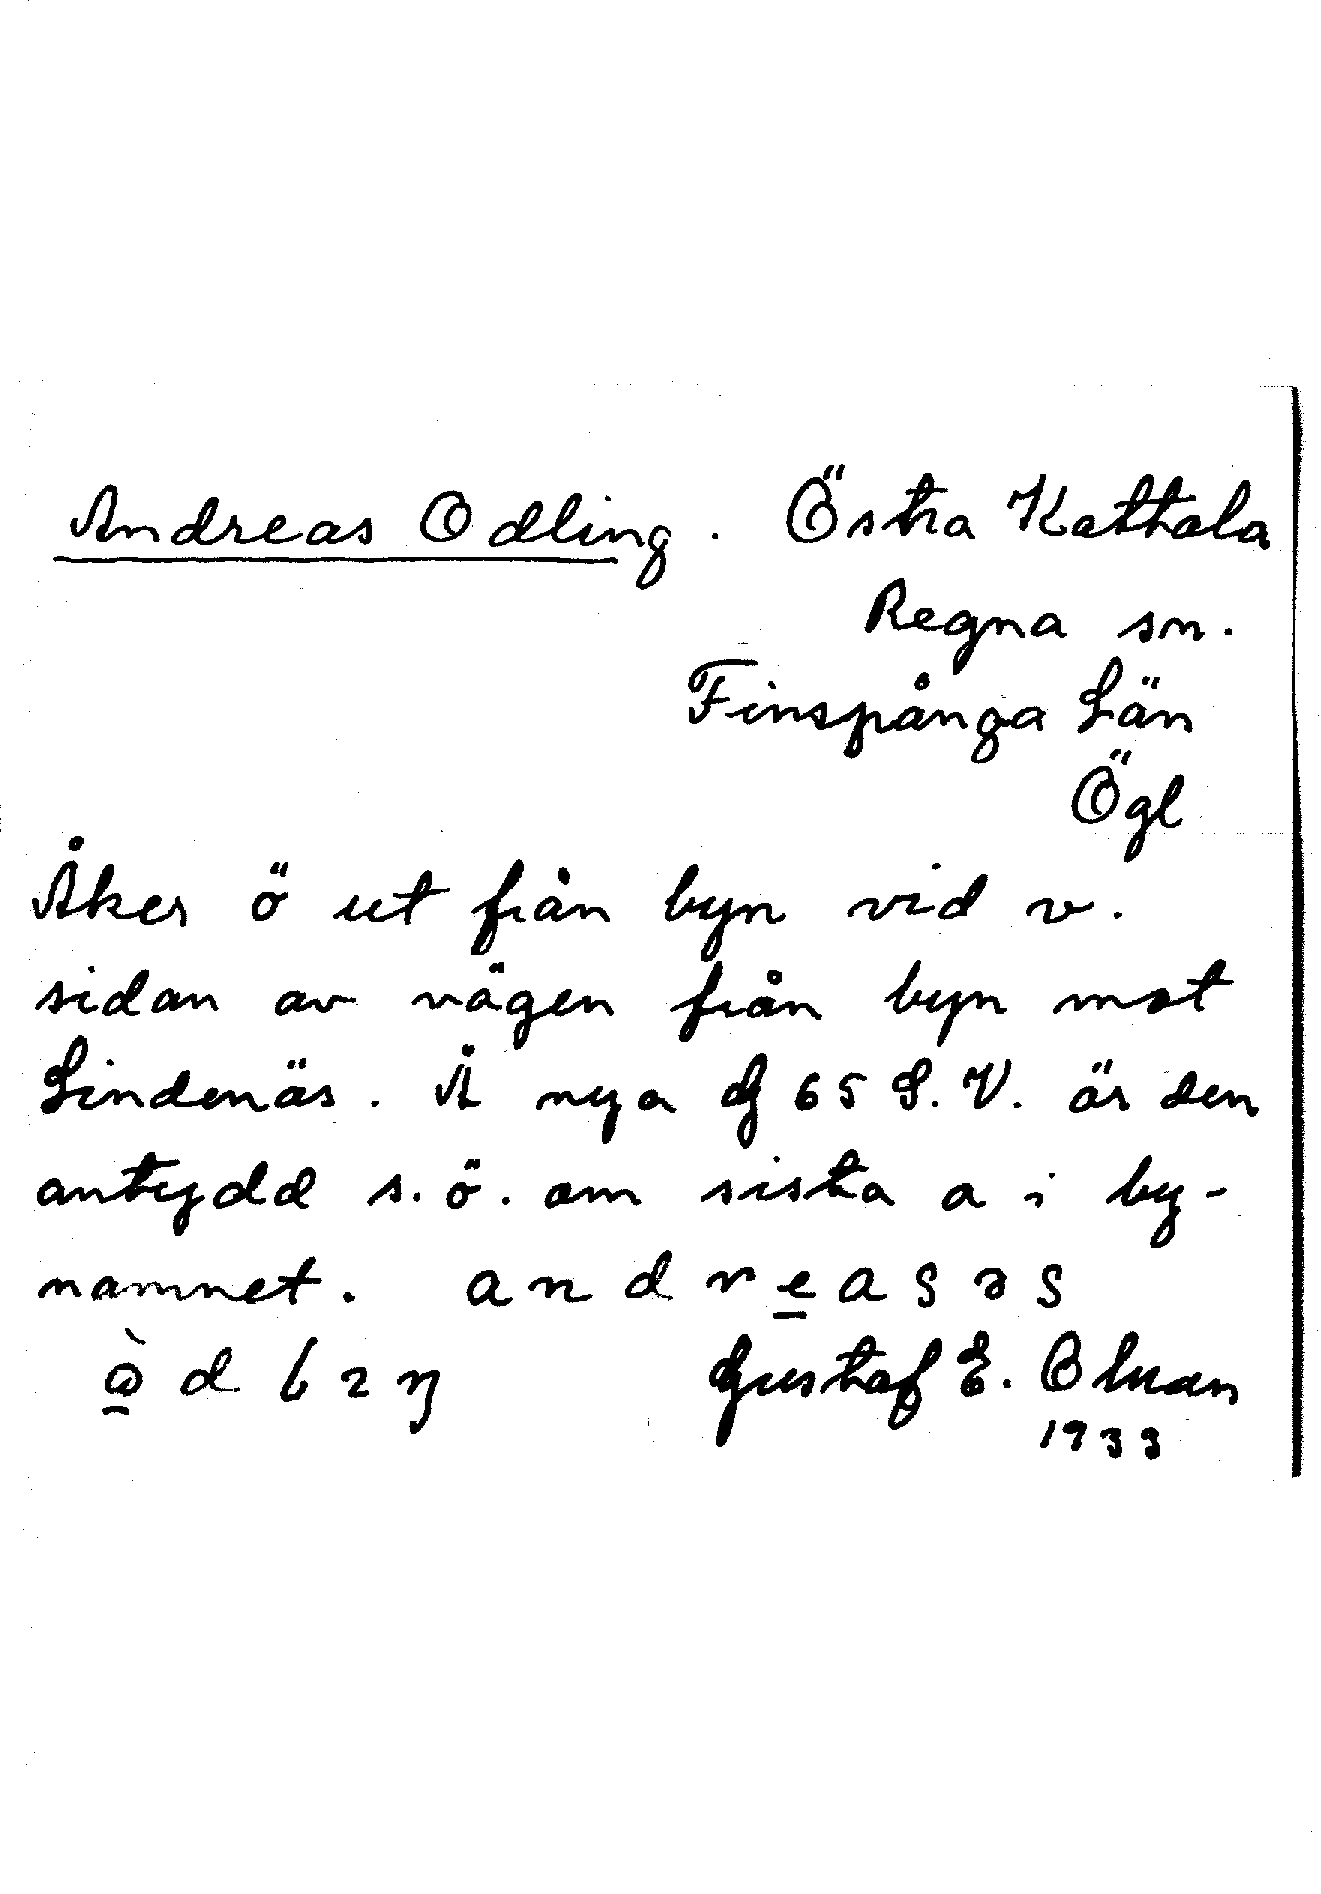 Andreas Odling. Östra Kattala
Regna sn.
Finspånga Län
Ögl
Åker ö ut från byn vid v.
sidan av vägen från byn mot
Lindenäs. Å nya G 65 S.V. är den
antydd s.ö. om sista a i by-
namnet. andreasəs
d l ı ŋ Gustaf E.
1933